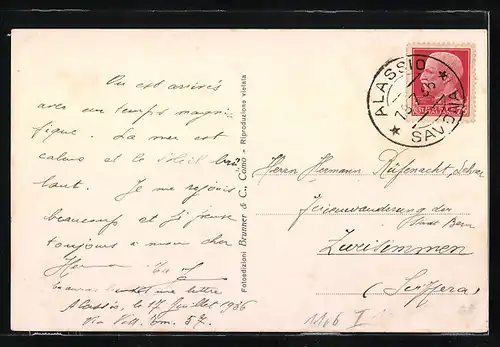 On est arrivés
avec un temps magni-
fique. La mer est
calme et le soleil brû
lant. Je me rejouis
beaucoup et je pense
toujours a mon cher
Herman
une lettre
Alassio, le 17 Juillet 1936
Via Vitt. Em. 57.
Fotoedizioni Brunner & C., Como - Riproduzione vietata
ALASSIO
SAVONA
Herrn Hermann Rüfenacht, Lehrer
Ferienwanderung der
Stadt Bern
Zweisimmen
(Svizzera)